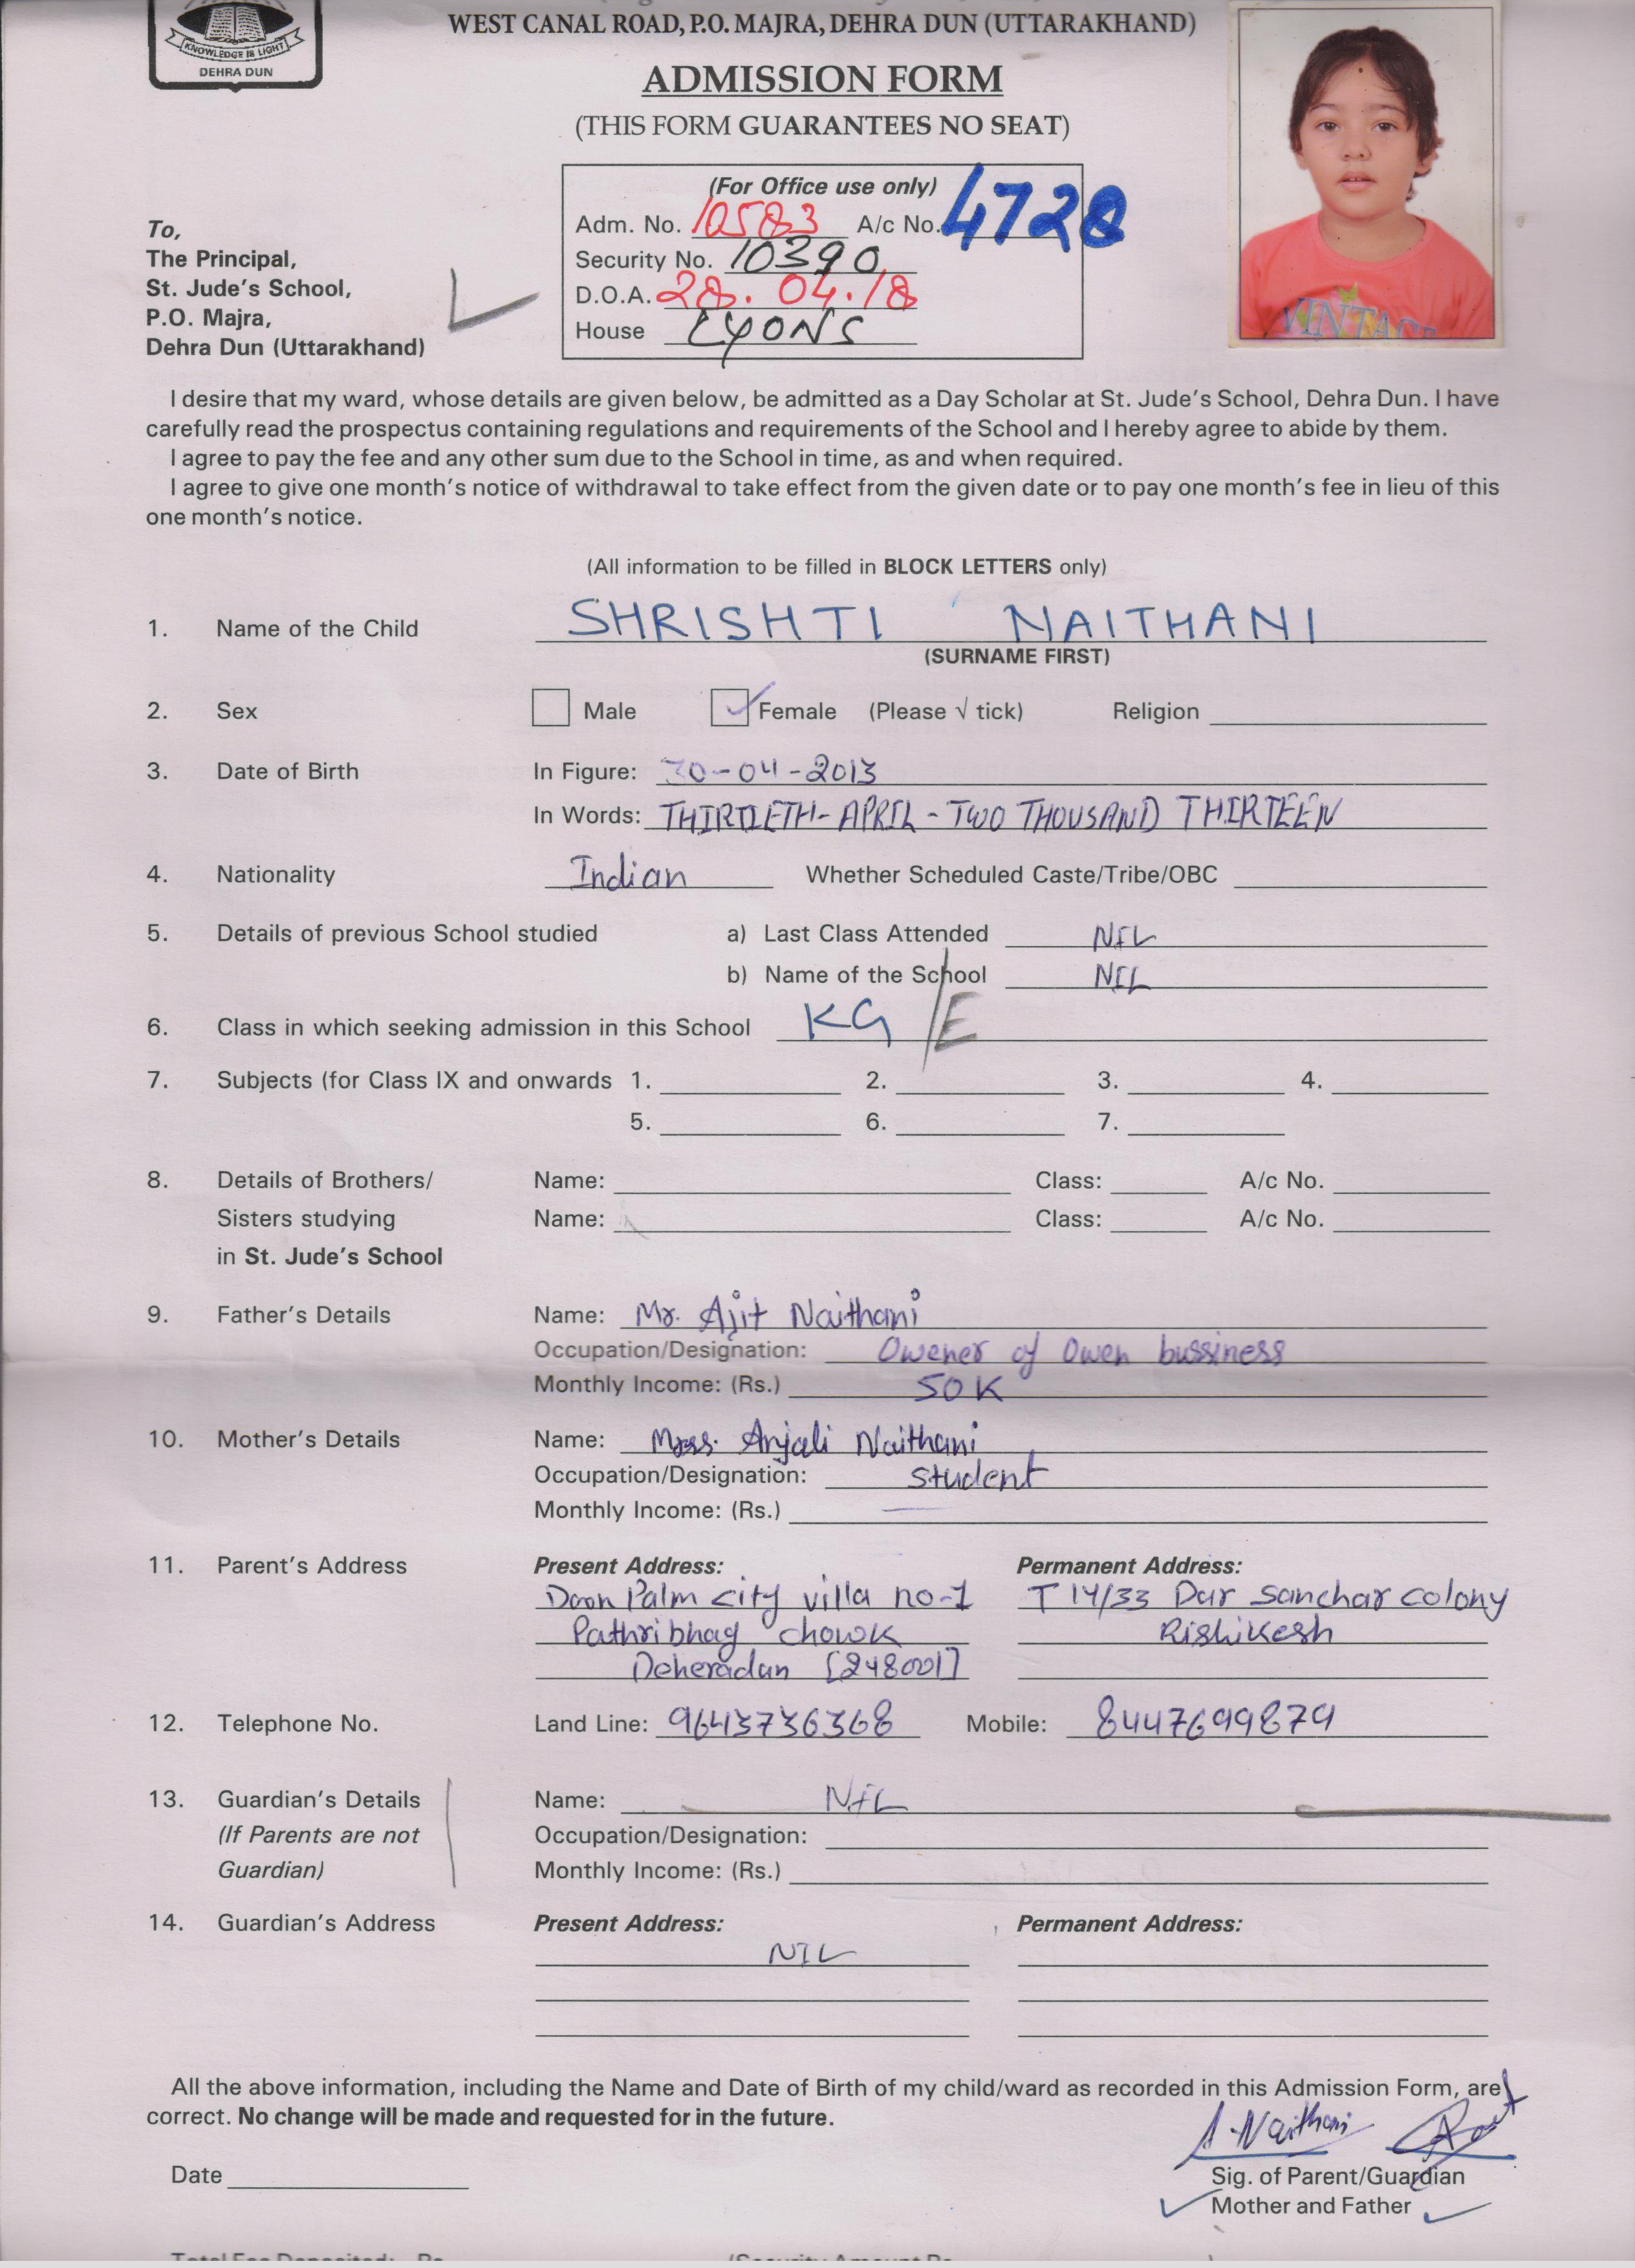 KNOWLEDGE IS LIGHT
DEHRA DUN
WEST CANAL ROAD, P.O. MAJRA, DEHRA DUN (UTTARAKHAND)
ADMISSION FORM
(THIS FORM GUARANTEES NO SEAT)
(For Office use only)
Adm. No. 10583 A/c No. 4728
Security No. 10390
D.O.A. 28.04.18
House LYONS
To,
The Principal,
St. Jude's School,
P.O. Majra,
Dehra Dun (Uttarakhand)
VINTAGE
I desire that my ward, whose details are given below, be admitted as a Day Scholar at St. Jude's School, Dehra Dun. I have
carefully read the prospectus containing regulations and requirements of the School and I hereby agree to abide by them.
I agree to pay the fee and any other sum due to the School in time, as and when required.
I agree to give one month's notice of withdrawal to take effect from the given date or to pay one month's fee in lieu of this
one month's notice.
(All information to be filled in BLOCK LETTERS only)
1. Name of the Child SHRISHTI NAITHANI
(SURNAME FIRST)
2. Sex Male Female (Please √ tick) Religion
3. Date of Birth In Figure: 30-04-2013
In Words: THIRTIETH-APRIL-TWO THOUSAND THIRTEEN
4. Nationality Indian Whether Scheduled Caste/Tribe/OBC
5. Details of previous School studied a) Last Class Attended NIL
b) Name of the School NIL
6. Class in which seeking admission in this School KG /E
7. Subjects (for Class IX and onwards 1. 2. 3. 4.
5. 6. 7.
8. Details of Brothers/ Name: Class: A/c No.
Sisters studying Name: Class: A/c No.
in St. Jude's School
9. Father's Details Name: Mr. Ajit Naithani
Occupation/Designation: Owener of Owen bussiness
Monthly Income: (Rs.) 50K
10. Mother's Details Name: Anjali Naithani
Occupation/Designation: student
Monthly Income: (Rs.)
11. Parent's Address Present Address: Permanent Address:
Doon Palm city villa no-1 T 14/33 Dur Sanchar colony
Pathribhag chowk Rishikesh
Deheradun [248001]
12. Telephone No. Land Line: 9643736368 Mobile: 8447699879
13. Guardian's Details Name: NIL
(If Parents are not Occupation/Designation:
Guardian) Monthly Income: (Rs.)
14. Guardian's Address Present Address: Permanent Address:
NIL
All the above information, including the Name and Date of Birth of my child/ward as recorded in this Admission Form, are
correct. No change will be made and requested for in the future.
A.Naithani
Date Sig. of Parent/Guardian
Mother and Father